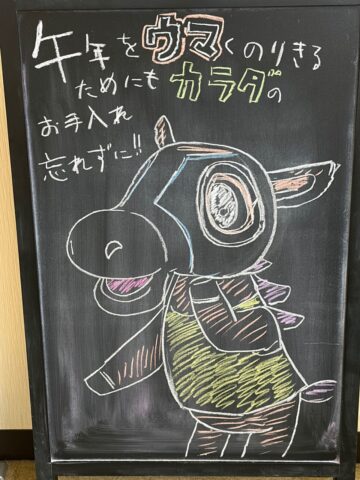 午年をウマくのりきる
ためにもカラダの
お手入れ
忘れずに!!